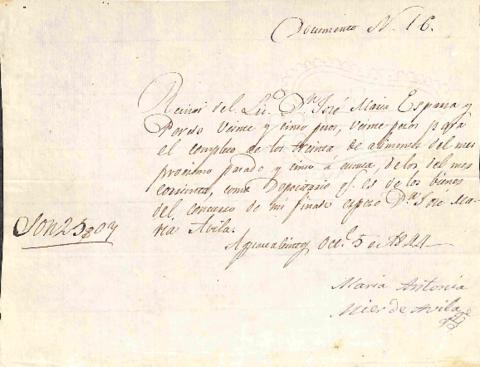 Documento N. 16.
Recivi del Lic.º D.n José Maria Esparza y
Peredo veinte y cinco pesos, veinte pesos para
el completo de los treinta de alimentos del mes
procsimo pasado y cinco á cuenta, de los del mes
corriente, como Depositario q.e es de los bienes
del, concurso de mi finado esposo D.n José Ma-
ria Avila.
Oct.e 5 de 1844
Son 25 ps
Maria Antonia
Mier de Avila